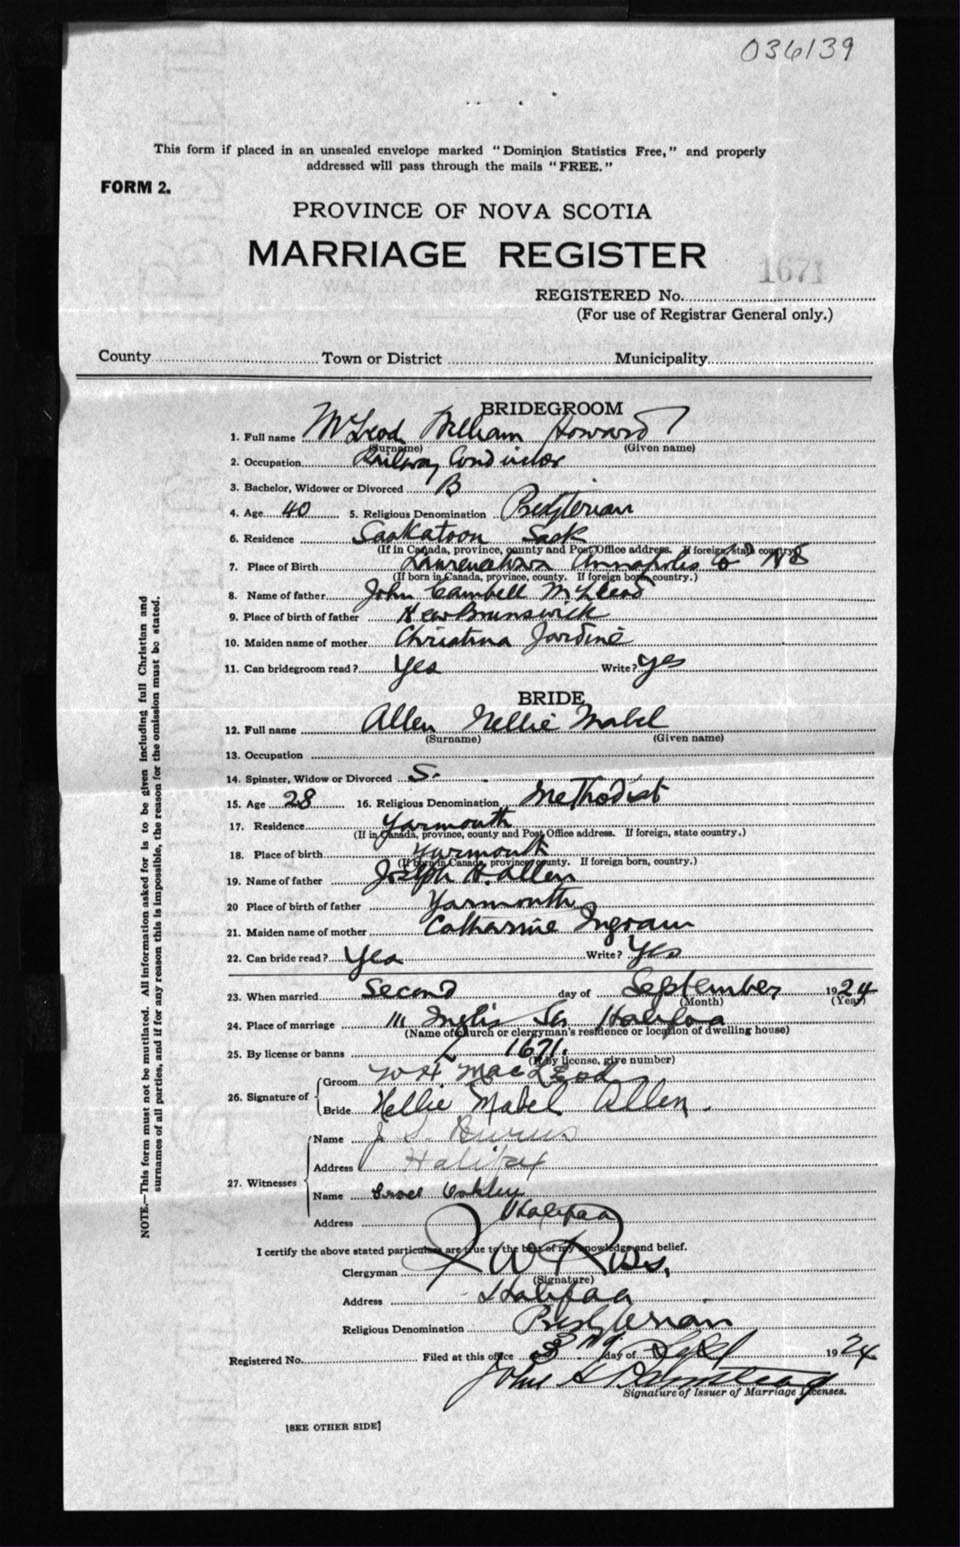 036139
This form if placed in an unsealed envelope marked "Dominion Statistics Free," and properly
addressed will pass through the mails "FREE."
FORM 2.
PROVINCE OF NOVA SCOTIA
MARRIAGE REGISTER
1671
REGISTERED No.
(For use of Registrar General only.)
County Town or District Municipality
BRIDEGROOM
1. Full name McLeod William Howard
(Surname) (Given name)
2. Occupation Railway Conductor
3. Bachelor, Widower or Divorced B
4. Age 40 5. Religious Denomination Presbyterian
6. Residence Saskatoon Sask
(If in Canada, province, county and Post Office address. If foreign, state country)
7. Place of Birth Annapolis Co NS
(If born in Canada, province, county. If foreign born, country.)
8. Name of father John Cambell McLeod
9. Place of birth of father New Brunswick
10. Maiden name of mother Christina Jardine
11. Can bridegroom read? Yes Write? Yes
BRIDE
12. Full name Allen Nellie Mabel
(Surname) (Given name)
13. Occupation
14. Spinster, Widow or Divorced S.
15. Age 28 16. Religious Denomination Methodist
17. Residence Yarmouth
(If in Canada, province, county and Post Office address. If foreign, state country.)
18. Place of birth Yarmouth
(If born in Canada, province, county. If foreign born, country.)
19. Name of father Joseph H. Allen
20 Place of birth of father Yarmouth
21. Maiden name of mother Catharine Ingram
22. Can bride read? Yes Write? Yes
23. When married Second day of September 1924
(Month) (Year)
24. Place of marriage 111 Inglis St Halifax
(Name of church or clergyman's residence or location of dwelling house)
25. By license or banns L 1671.
(If by license, give number)
26. Signature of
Groom W H MacLeod
Bride Nellie Mabel Allen.
27. Witnesses
Name J S. Burns
Address Halifax
Name Grace Oakley
Address Halifax
I certify the above stated particulars are true to the best of my knowledge and belief.
Clergyman Ross,
(Signature)
Address Halifax
Religious Denomination Presbyterian
Registered No. Filed at this office 3rd day of Sept 1924
John
Signature of Issuer of Marriage Licenses.
[SEE OTHER SIDE]
NOTE.—This form must not be mutilated. All information asked for is to be given including full Christian and
surnames of all parties, and if for any reason this is impossible, the reason for the omission must be stated.